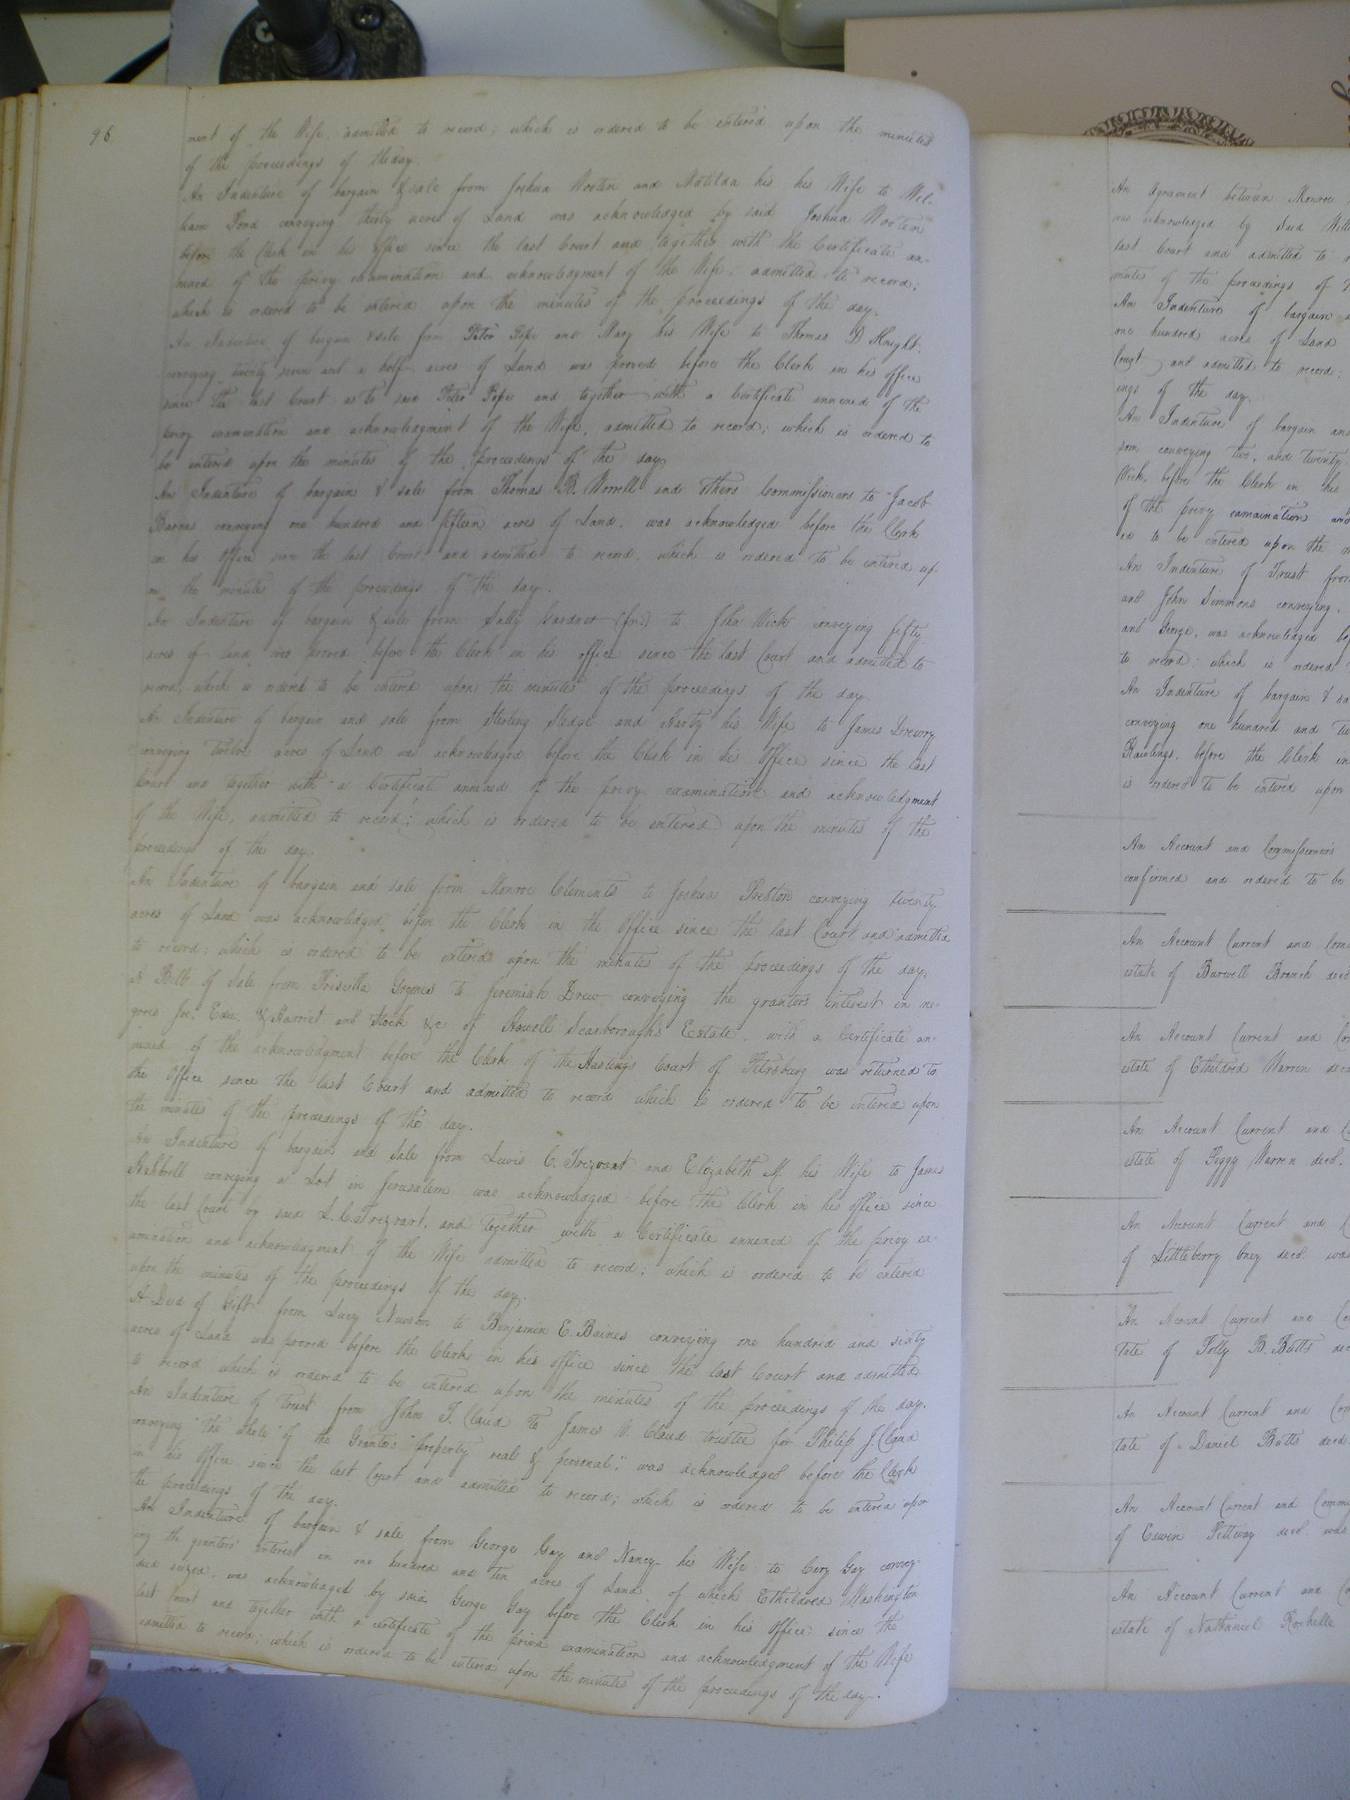 96
ment of the Wife, admitted to record; which is ordered to be entered upon the minutes
of the proceedings of the day.
An Indenture of bargain & sale from Joshua Wooten and Matilda his his Wife to Wil-
liam Pond conveying thirty acres of Land was acknowledged by said Joshua Wooten
before the Clerk in his office since the last Court and together with the Certificate an-
nexed of the privy examination and acknowledgment of the Wife, admitted to record;
which is ordered to be entered upon the minutes of the proceedings of the day.
An Indenture of bargain & sale from Peter Pope and Mary his Wife to Thomas D Knight
conveying twenty seven and a half acres of Land was proved before the Clerk in his office
since the last Court as to said Peter Pope and together with a Certificate annexed of the
privy examination and acknowledgment of the Wife, admitted to record; which is ordered to
be entered upon the minutes of the proceedings of the day
An Indenture of bargain & sale from Thomas R. Worrell and others Commissioners to Jacob
Barnes conveying one hundred and fifteen acres of Land, was acknowledged before the Clerk
in his Office since the last Court and admitted to record, which is ordered to be entered up
on the minutes of the proceedings of the day.
An Indenture of bargain & sale from Sally Gardner to John Vick conveying fifty
acres of land was proved before the Clerk in his office since the last Court and admitted to
record; which is ordered to be entered upon the minutes of the proceedings of the day
An Indenture of bargain and sale from Sterling Sledge and his Wife to James Drewry
conveying twelve acres of Land was acknowledged before the Clerk in his Office since the last
Court and together with a Certificate annexed of the privy examination and acknowledgment
of the Wife, admitted to record; which is ordered to be entered upon the minutes of the
proceedings of the day.
An Indenture of bargain and sale from Monroe Clements to Joshua Pretlow conveying twenty
acres of Land was acknowledged before the Clerk in the Office since the last Court and admitted
to record; which is ordered to be entered upon the minutes of the proceedings of the day.
A Bill of Sale from Priscilla Grooves to Jeremiah Drew conveying the grantor's interest in ne-
groes Joe, & Harriet and Stock &c of Howell Scarborough's Estate, with a Certificate an-
nexed of the acknowledgment before the Clerk of the Hustings Court of Petersburg was returned to
the Office since the last Court and admitted to record which is ordered to be entered upon
the minutes of the proceedings of the day.
An Indenture of bargain and sale from Lewis C. Trezvant and Elizabeth M. his Wife to James
conveying a Lot in Jerusalem was acknowledged before the Clerk in his office since
the last Court by said L. C. Trezvant, and together with a Certificate annexed of the privy ex-
amination and acknowledgment of the Wife admitted to record; which is ordered to be entered
upon the minutes of the proceedings of the day.
A Deed of Gift from Lucy Newsom to Benjamin E. Baines conveying one hundred and sixty
acres of Land was proved before the Clerk in his office since the last Court and admitted
to record which is ordered to be entered upon the minutes of the proceedings of the day.
An Indenture of trust from John T. Claud to James W. Claud trustee for Philip J. Claud
conveying "the whole of the Grantors property real & personal," was acknowledged before the Clerk
in his Office since the last Court and admitted to record; which is ordered to be entered upon
the proceedings of the day.
An Indenture of bargain & sale from George Gay and Nancy his Wife to Cary Gay convey-
ing the grantors' interest in one hundred and ten acres of Land, of which Etheldred Washington
died seized, was acknowledged by said George Gay before the Clerk in his Office since the
last Court and together with a certificate of the privie examination and acknowledgment of the Wife
admitted to record; which is ordered to be entered upon the minutes of the proceedings of the day.
An Agreement between Monroe
was acknowledged by said
last Court and admitted to
minutes of the proceedings of
An Indenture of bargain
one hundred acres of Land
Court and admitted to record;
ings of the day.
An Indenture of bargain and
som conveying two, and twenty
Vick, before the Clerk in his
of the privy examination and
ed to be entered upon the
An Indenture of Trust from
and John Simmons conveying,
and George, was acknowledged
to record; which is ordered
An Indenture of bargain &
conveying one hundred and
Rawlings, before the Clerk in
is ordered to be entered upon
An Account and Commissioners
confirmed and ordered to be
An Account Current and
estate of Burwell Branch decd
An Account Current and
estate of Etheldred Warren
An Account Current and
estate of Peggy Warren decd.
An Account Current and
of Littleberry decd. was
An Account Current and
tate of Polly B. Butts
An Account Current and
tate of Daniel Butts decd.
An Account Current and Comm
of Edwin Pettway decd. was
An Account Current and
estate of Nathaniel Rochelle